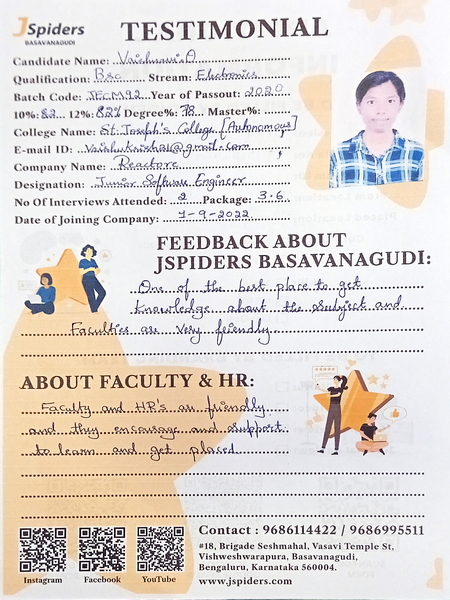 JSpiders
BASAVANAGUDI
TESTIMONIAL
Candidate Name: Vaishnavi.A
Qualification: Bsc Stream: Electronics
Batch Code: JECM92 Year of Passout: 2020
10%: 82 12%: 82% Degree%: 78 Master%:
College Name: St. Joseph's College [Autonomous]
E-mail ID: @gmail.com
Company Name: Reactore
Designation: Junior Software Engineer
No Of Interviews Attended: 2 Package: 3.6
Date of Joining Company: 7-9-2022
FEEDBACK ABOUT
JSPIDERS BASAVANAGUDI:
One of the best place to get
knowledge about the subject and
Faculties are very friendly
ABOUT FACULTY & HR:
Faculty and HR's are friendly
and they encourage and support
to learn and get placed
Contact : 9686114422 / 9686995511
#18, Brigade Seshmahal, Vasavi Temple St,
Vishweshwarapura, Basavanagudi,
Bengaluru, Karnataka 560004.
www.jspiders.com
Instagram Facebook YouTube